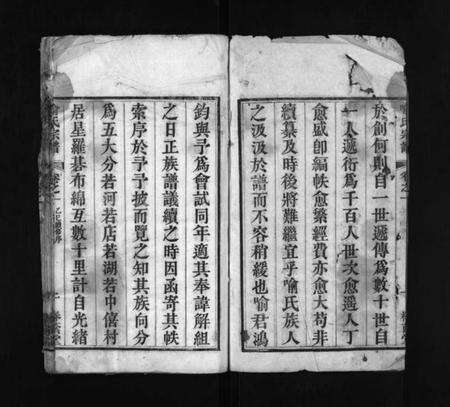 於創何則自一世遞傳爲數十世自
一人遞衍爲千百人世次愈遠人丁
愈盛卽編帙愈繁經費亦愈大苟非
續纂及時後將難繼宜乎喻氏族人
之汲汲於譜而不容稍緩也喻君鴻
鈞與予爲會試同年適其奉諱解組
之日正族譜議續之時因函寄其帙
索序於予予披而覽之知其族向分
爲五大分若河若店若湖若中僖村
居星羅碁布綿亙數十里計自光緒
氏宗譜
卷之一